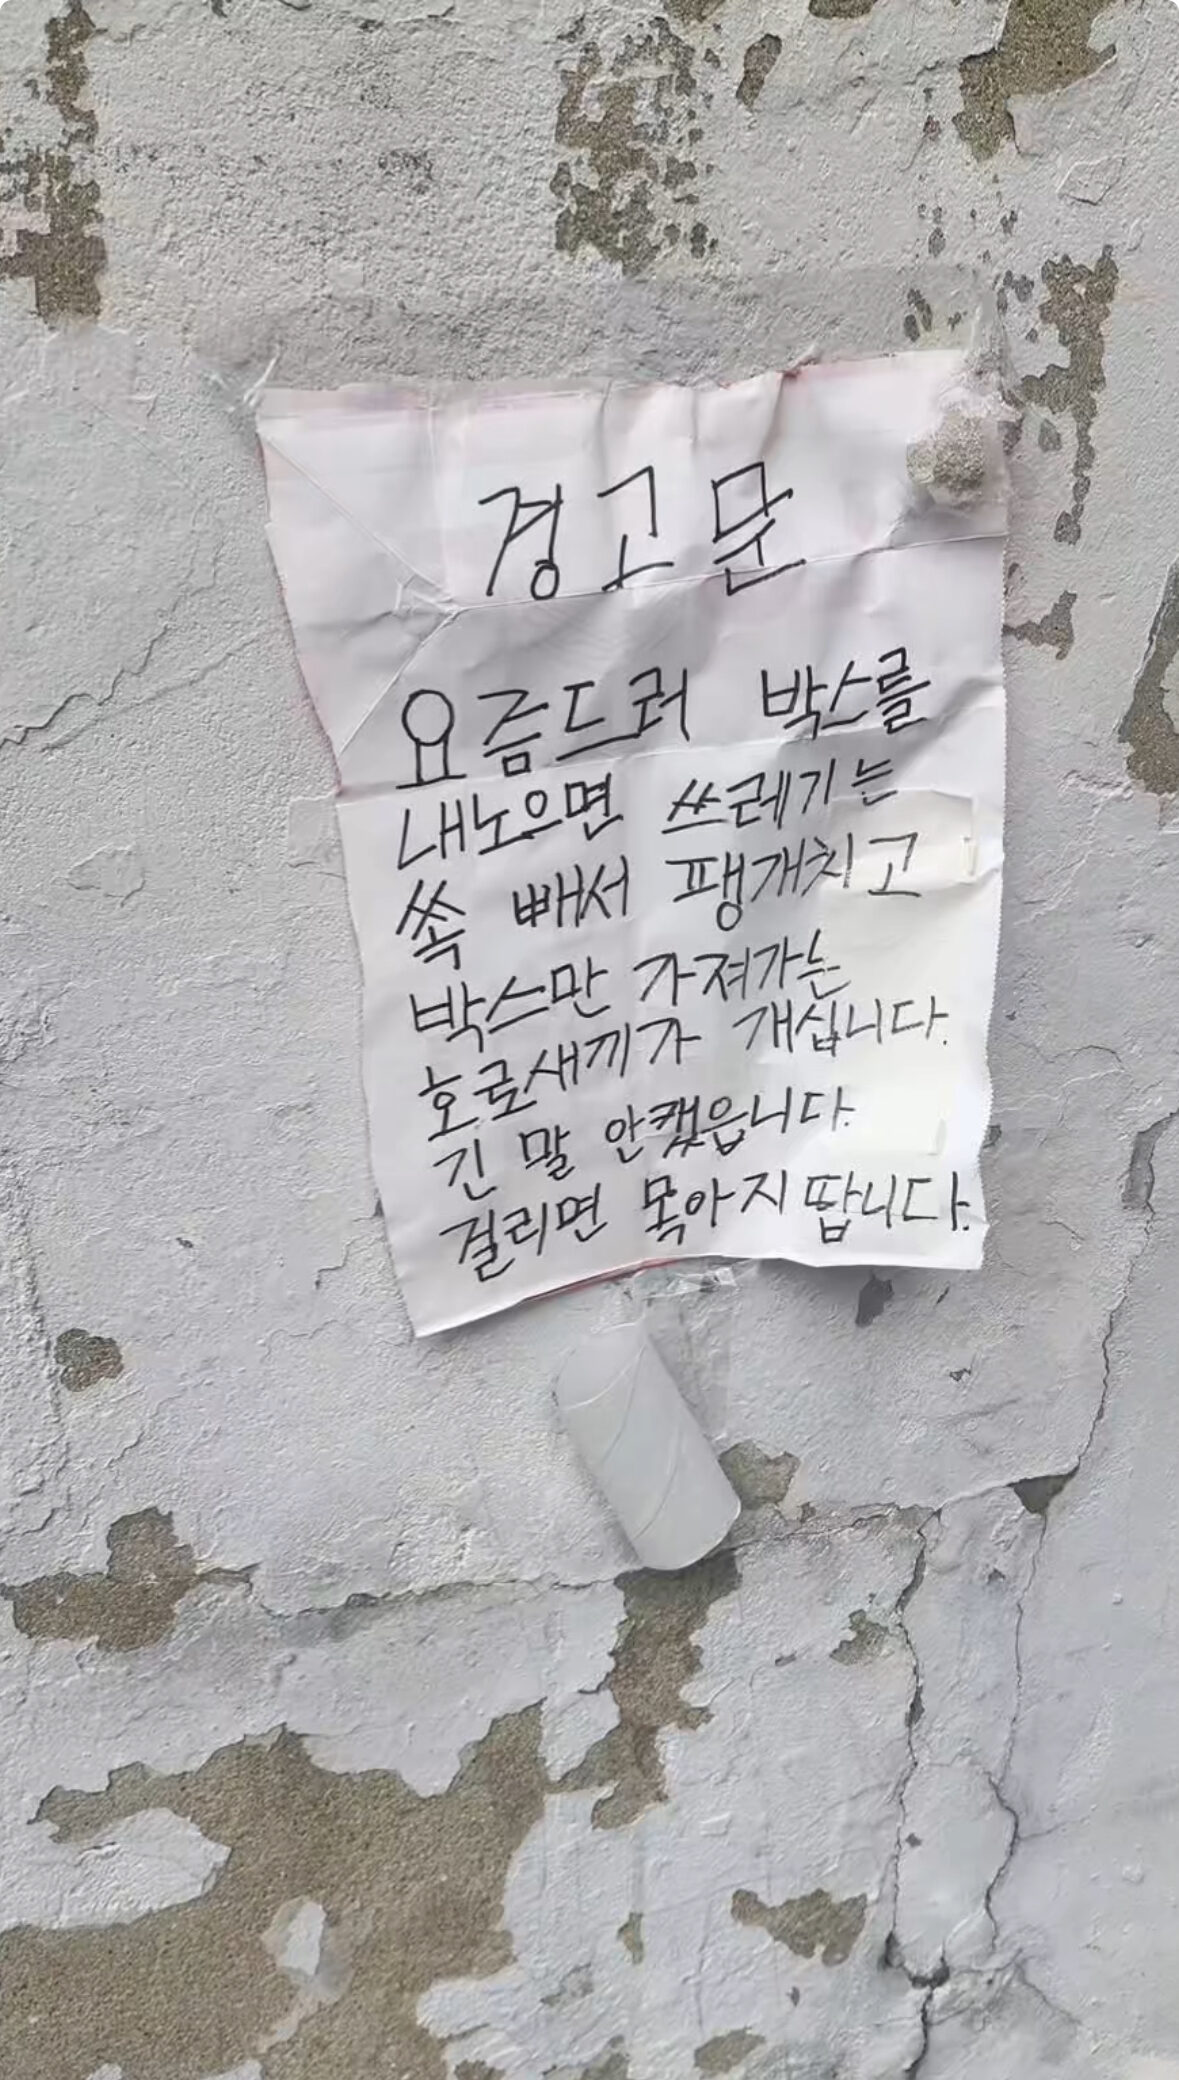 경고문
요즘드러 박스를
내노으면 쓰레기는
쏙 빼서 팽개치고
박스만 가져가는
호로새끼가 개십니다.
긴 말 안캤읍니다.
걸리면 목아지 땁니다.